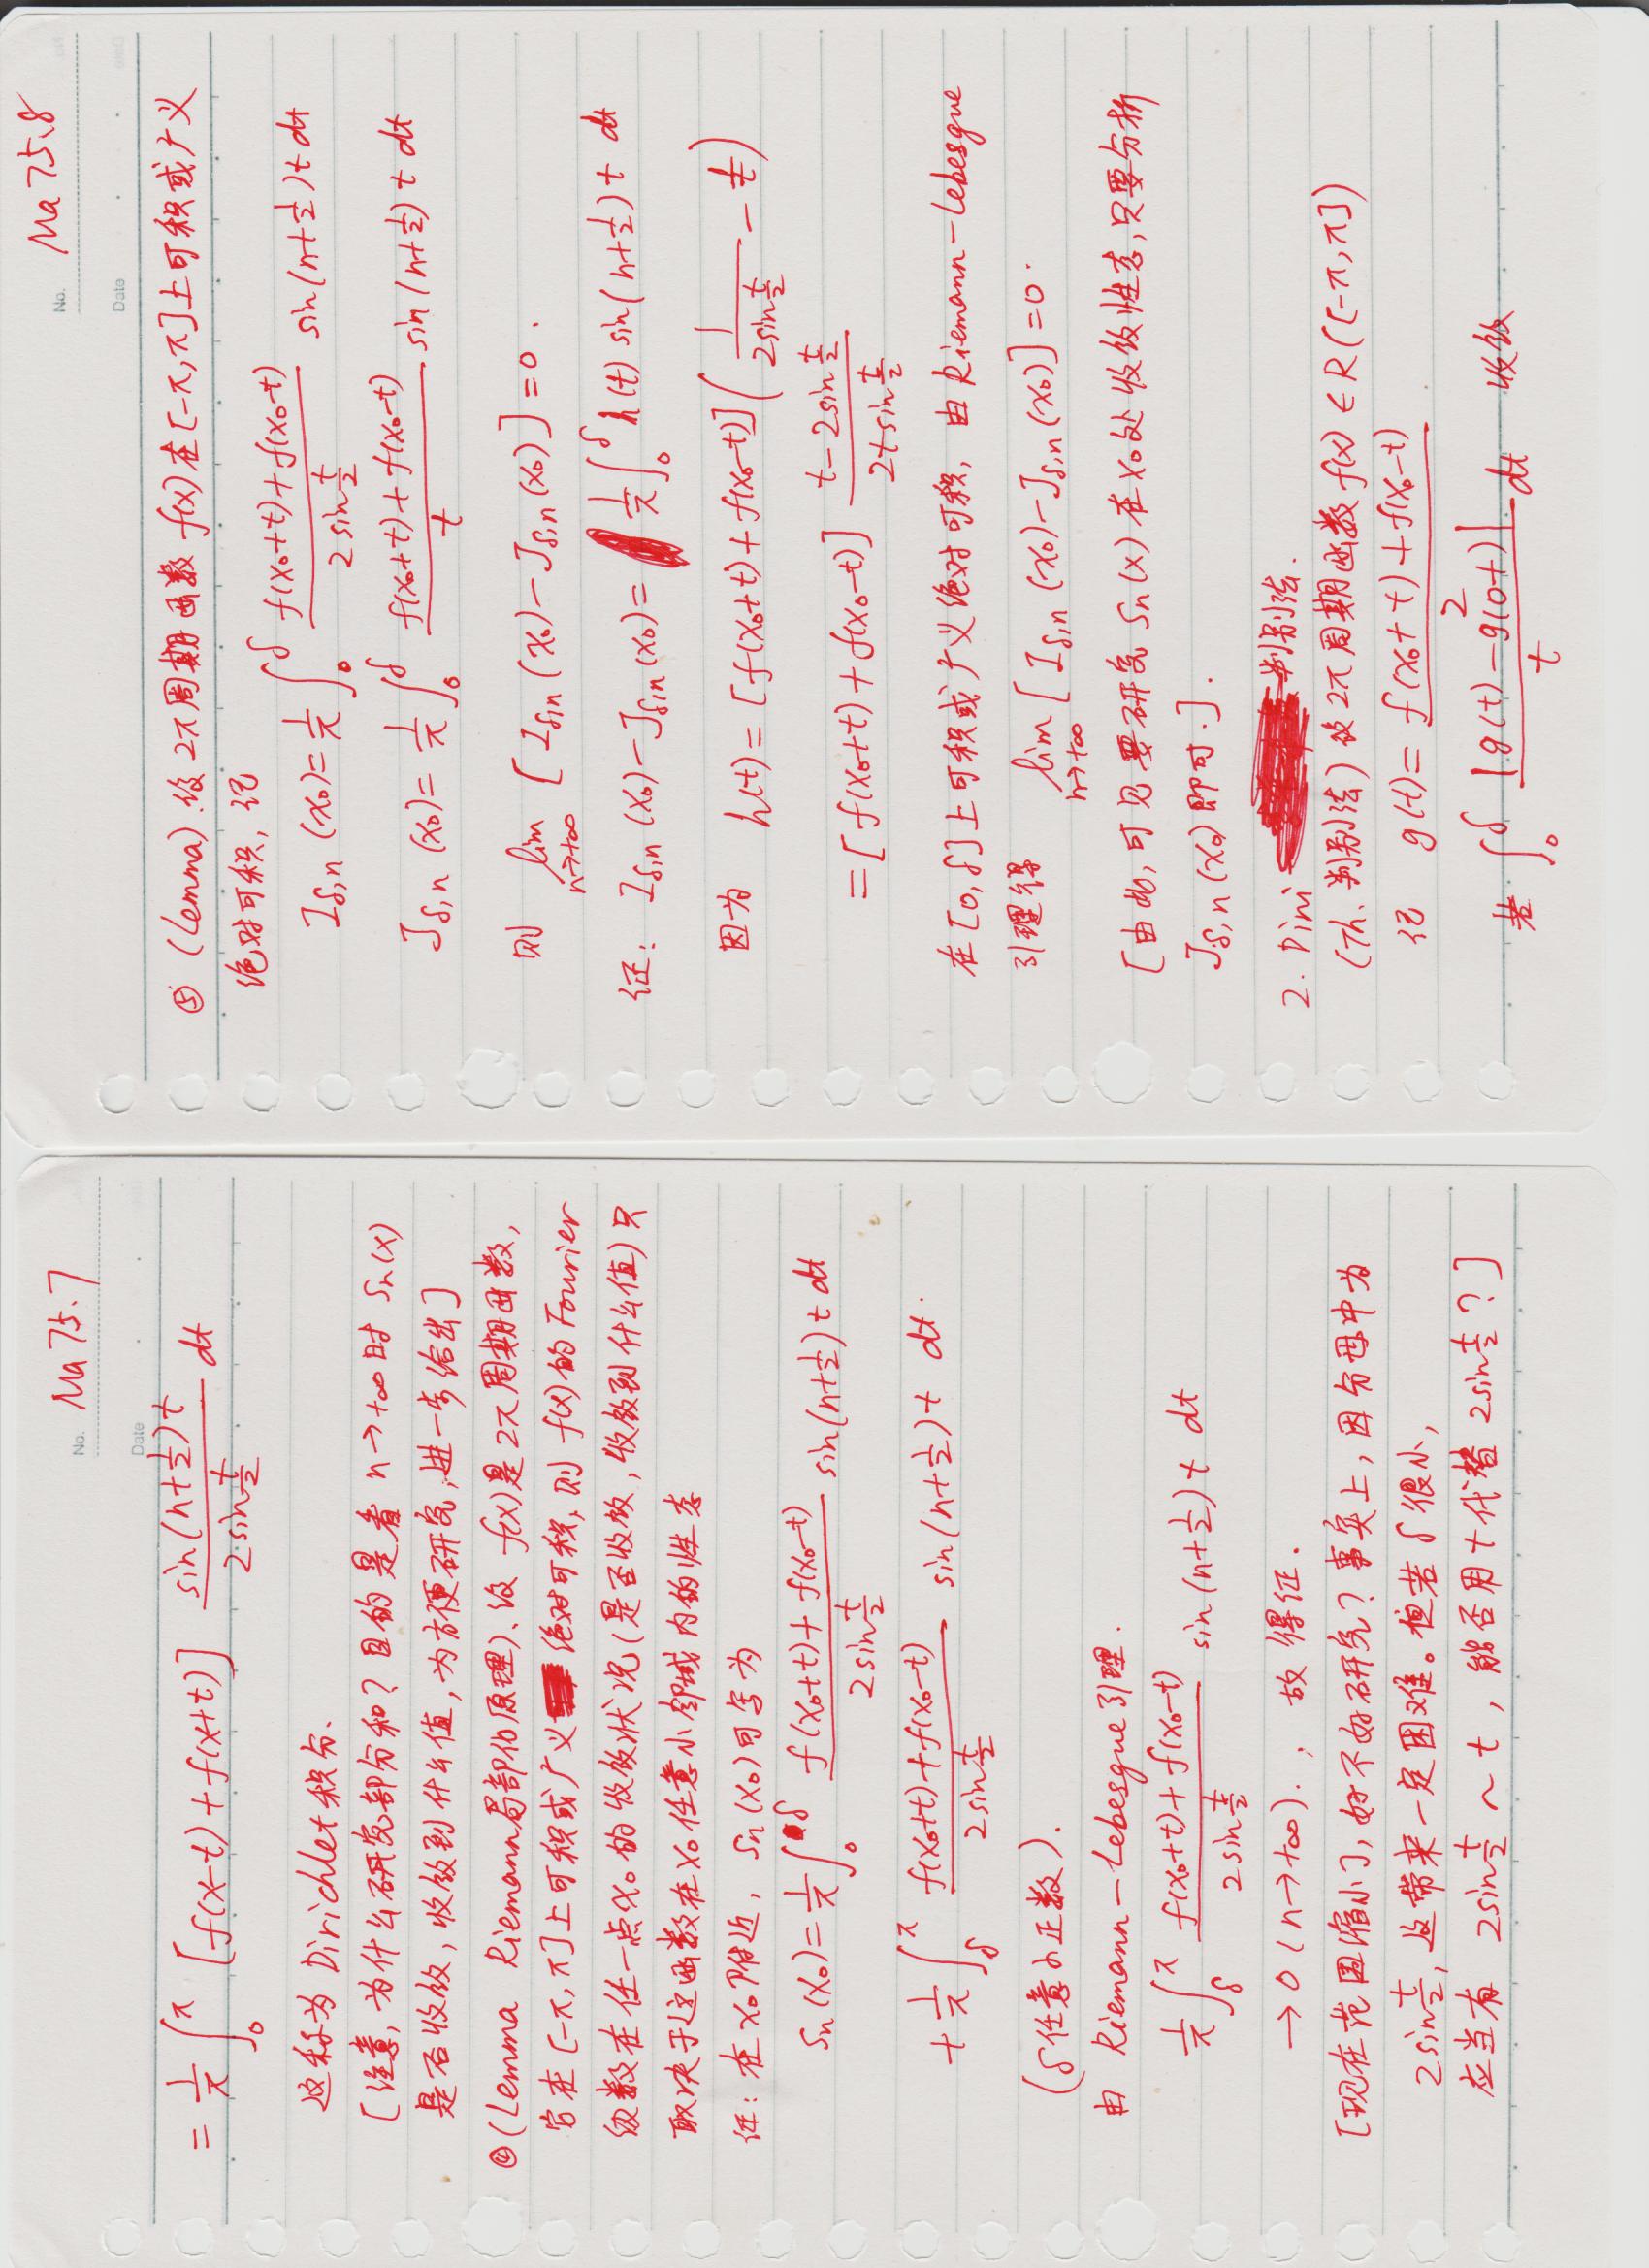 No. Ma 75.7
Date
= 1/π ∫_0^π [f(x-t)+f(x+t)] sin(n+1/2)t / (2sin t/2) dt
这称为 Dirichlet 积分.
[注意,为什么研究部分和?目的是看 n→+∞时 Sn(x)
是否收敛,收敛到什么值,为方便研究,进一步给出]
④(Lemma Riemann局部化原理)、设 f(x)是2π周期函数,
它在[-π,π]上可积或广义绝对可积,则 f(x)的 Fourier
级数在任一点x₀的收敛状况(是否收敛,收敛到什么值)只
取决于这函数在x₀任意小邻域内的性态
证:在x₀附近, Sn(x₀)可写为
Sn(x₀)= 1/π ∫_0^δ (f(x₀+t)+f(x₀-t)) / (2sin t/2) sin(n+1/2)t dt
+ 1/π ∫_δ^π (f(x₀+t)+f(x₀-t)) / (2sin t/2) sin(n+1/2)t dt.
(δ任意小正数).
由 Riemann-Lebesgue引理.
1/π ∫_δ^π (f(x₀+t)+f(x₀-t)) / (2sin t/2) sin(n+1/2)t dt
→0 (n→+∞)., 故得证.
[现在范围缩小了,好不好研究?事实上,因分母中为
2sin t/2, 这带来一定困难。但若δ很小,
应当有 2sin t/2 ~ t, 能否用t代替 2sin t/2 ?]
No. Ma 75.8
Date
⑤ (Lemma).设2π周期函数 f(x)在[-π,π]上可积或广义
绝对可积,记
I_δ,n (x₀)= 1/π ∫_0^δ (f(x₀+t)+f(x₀-t)) / (2sin t/2) sin(n+1/2)t dt
J_δ,n (x₀)= 1/π ∫_0^δ (f(x₀+t)+f(x₀-t)) / t sin(n+1/2)t dt
则 lim_{n→+∞} [I_δ,n (x₀)-J_δ,n (x₀)]=0.
证: I_δ,n (x₀)-J_δ,n (x₀)= 1/π ∫_0^δ h(t) sin(n+1/2)t dt
因为 h(t)=[f(x₀+t)+f(x₀-t)] (1/(2sin t/2) - 1/t)
=[f(x₀+t)+f(x₀-t)] (t-2sin t/2) / (2t sin t/2)
在[0,δ]上可积或广义绝对可积, 由Riemann-Lebesgue
引理得 lim_{n→+∞} [I_δ,n (x₀)-J_δ,n (x₀)]=0.
[由此,可见要研究 Sn(x)在x₀处收敛性态,只要分析
J_δ,n (x₀)即可.].
2. Dini 判别法.
(Th. 判别法)设2π周期函数 f(x)∈R([-π,π])
记 g(t)= (f(x₀+t)+f(x₀-t)) / 2
若 ∫_0^δ |g(t)-g(0+)| / t dt 收敛